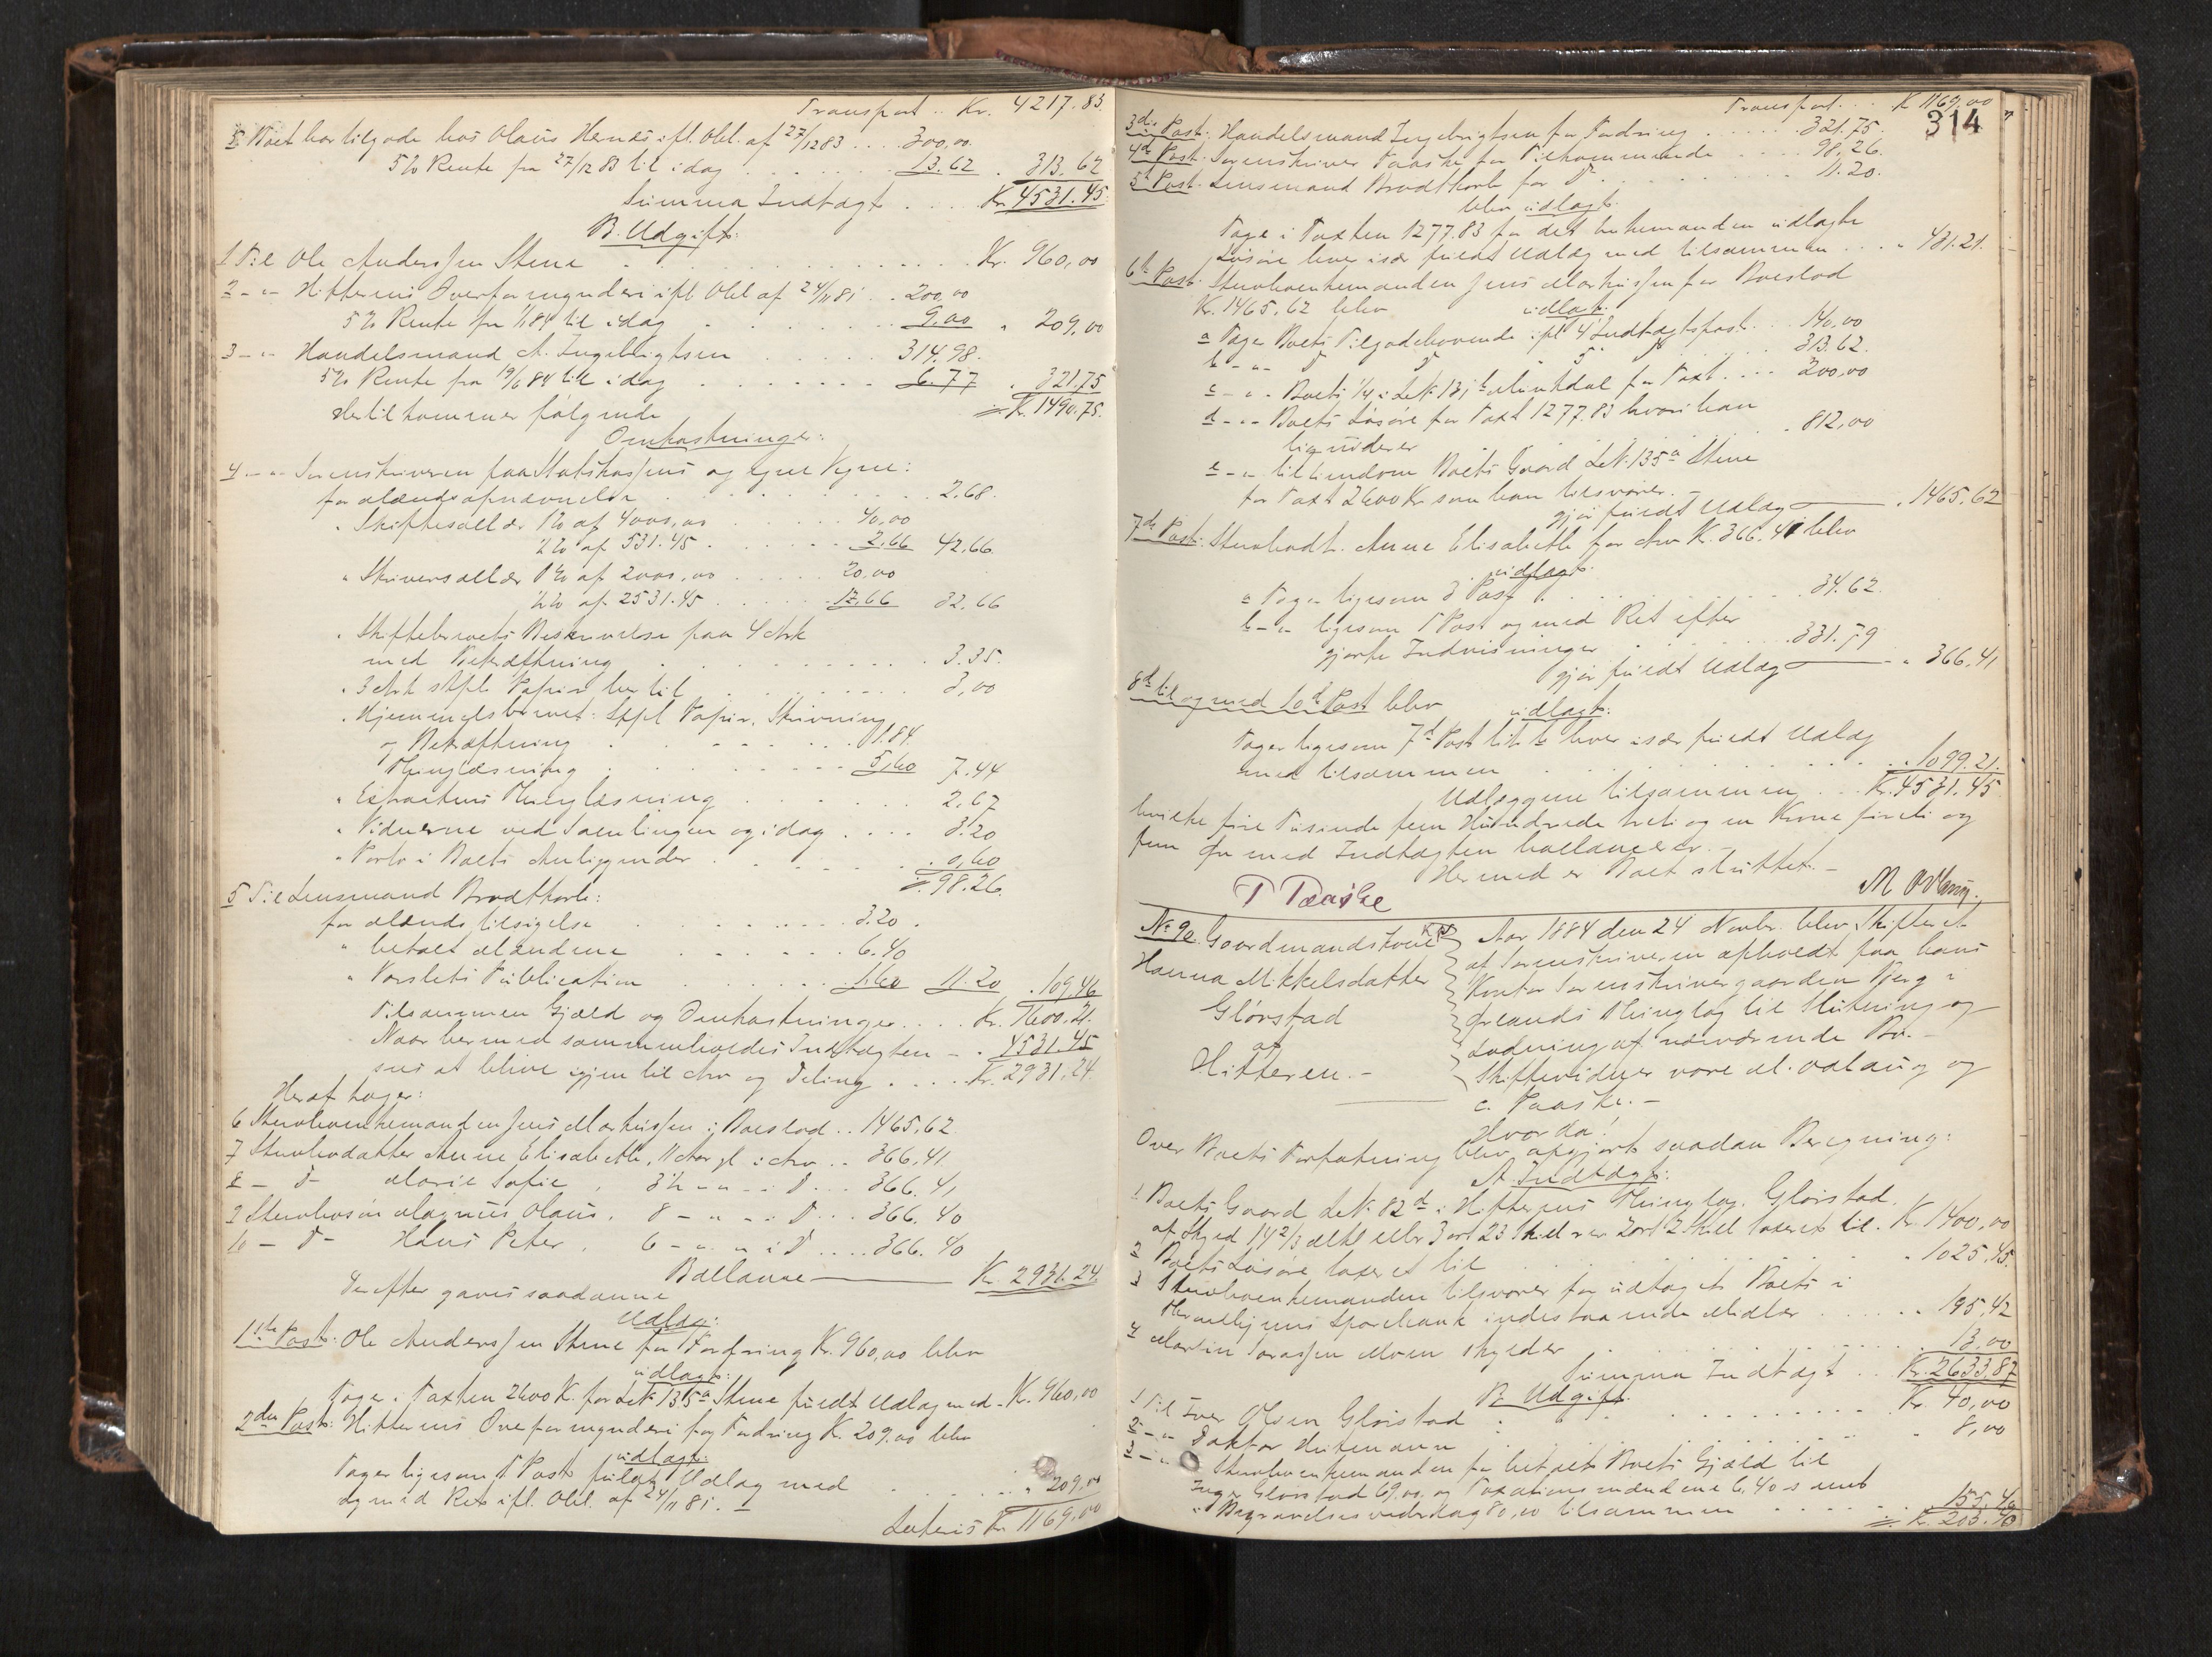 Transport .. Kr. 4217.83.
5 Boet har tilgode hos Olaus Hernes ifl. Obl. af 27/12 83 .... 300,00
5 % Rente fra 27/12 83 til idag ...... 13.62 . 313.62
Summa Indtægt .... Kr. 4531.45.
B. Udgift:
1 Til Ole Anderssen Stene .......... Kr. 960,00
2 - " - Hitterens Overformynderi ifl. Obl. af 24/11 81 .. 200,00
5 % Rente fra 1/1 84 til idag ...... 9.00 " 209,00
3 - " - Handelsmand A. Ingebrigtsen ..... 314.98.
5 % Rente fra 19/6 84 til idag ...... 6.77 . 321.75
Kr. 1490.75.
Hertil kommer følgende
Omkostninger:
4 - " - Sorenskriveren paa Statskassens og egne Vegne:
for Mændsopnævnelse ........ 2.68.
" Skiftesallær 1 % af 4000,00 ..... 40,00
½ % af 531.45 ..... 2.66 42.66.
" Skriversallær 1 % af 2000,00 .... 20,00
½ % af 2531.45 ..... 12,66 32.66
" Skiftebrevets Beskrivelse paa 4 Ark
med Bekræftning ........ 3.35.
" 3 Ark stpl. Papir hertil ........ 3,00
" Hjemmelsbrevet: Stpl. Papir, Skrivning
og Bekræftning ....... 1.84.
Thinglæsning ....... 5,60 7.44
" Extractens Thinglæsning ...... 2.67
" Vidnerne ved Samlingen og idag .... 3.20
" Porto i Boets Anliggender ...... 0,60
98.26.
5 Til Lensmand Brodtkorb:
for Mænds tilsigelse ....... 3.20.
" betalt Mændene ..... 6.40
" Varslets Publication ...... 1.60 11.20 . 109.46
Tilsammen Gjæld og Omkostninger .... Kr. 1600.21.
Naar hermed sammenholdes Indtægten - . 4531.45
sees at blive igjen til Arv og Deling .... Kr. 2931.24.
Heraf tager:
6 Sterboenkemanden Jens Markussen i Boeslod .. 1465.62
7 Sterbodatter Anne Elisabeth, 11 Aar gl. i Arv ... 366.41.
8 - D - Marie Sofie , 3½ - " - i D ... 366.41
9 Sterbosøn Magnus Olaus, 8 - " - i D ... 366.40
10 - D - Hans Peter , 6 - " - i D .... 366.40
Ballance Kr. 2931.24
Derefter gaves saadanne
Udlæg:
1ste Post: Ole Anderssen Stene for Fordring Kr. 960,00 blev
udlagt:
Tage i Taxten 2600 K. for Løb No 135a Stene fuldt Udlæg med . K. 960,00
2den Post: Hitterens Overformynderi for Fordring K. 209.00 blev
udlagt:
Tager ligesom 1 Post fuldt Udlæg med ..... " 209.00
og med Ret ifl. Obl. af 24/11 81.
Lateris Kr. 1169.00
Transport ... K 1169.00
314
3die Post: Handelsmand Ingebrigtsen for Fordring ..... 321.75.
4de Post: Sorenskriver Paaske for Tilkommende .... 98.26.
5te Post. Lensmand Brodtkorb for D ........ 11.20.
blev udlagt:
Tage i Taxten 1277.83 for det Enkemanden udlagte
Løsøre hver især fuldt Udlæg med tilsammen .... " 431.21.
6te Post: Sterboenkemanden Jens Markussen for Boeslod
Kr. 1465.62 blev udlagt:
a Tage Boets Tilgodehavende ifl. 4 Indtægtspost. .. 140.00
b - " - D D 5 D .... 313.62.
c - " - Boets ¼ i Løb No 131, b Muntdal for Taxt .... 200,00
d - " - Boets Løsøre for Taxt 1277.83 hvori han
liquiderer ........ 812,00
e - " - til Eiendom Boets Gaard Løb No 135a Stene
for Taxt 2600 Kr som han tilsvarer. -
gjør fuldt Udlæg . 1465.62
7de Post: Sterbodt. Anne Elisabeth for Arv K. 366.41 blev
udlagt:
a Tage ligesom 3 Post ........ 34.62.
b - " - ligesom 1 Post og med Ret efter
gjorte Indvisninger ..... 331.79
gjør fuldt Udlæg . 366.41
8de til og med 10de Post blev udlagt:
Tager ligesom 7de Post lit. b hver især fuldt Udlæg
med tilsammen ........ 1099.21.
Udlæggene tilsammen ... Kr. 4531.45
hvilke fire Tusinde fem Hundrede treti og en Krone firti og
fem Øre med Indtægten ballancerer. -
Hermed er Boet sluttet. -
P Paaske M Ovlaug.
No 90 Gaardmandskone
Hanna Mikkelsdatter
Glørstad
af
Hitteren. -
Aar 1884 den 24 Novbr. blev Skifteret
af Sorenskriveren afholdt paa hans
Kontor Sorenskrivergaarden Bjerg i
Ørlands Thinglag til Slutning og
Lodning af nærværende Bo. -
Skiftevidner vare M. Ovlaug og
C. Paaske. -
Hvorda!
Over Boets Forfatning blev afgjort saadan Beregning:
A. Indtægt:
1 Boets Gaard Løb No 82d i Hitterens Thinglag. Glørstad
af Skyld 14 2/3 Mkl. eller 3 ort 23 Skill. ny 2 ort 2 Skill taxeret til . Kr. 1400,00
2 Boets Løsøre taxeret til ........ . 1025.45.
3 Sterboenkemanden tilsvarer for udtaget Boets i
Sparebank indestaaende Midler ..... " 195.42
4 Martin Larsen Moen skylder ....... 13.00
Summa Indtægt .. Kr. 2633.87
B. Udgift:
1 Til Iver Olsen Glørstad ......... Kr. 40,00
2 - " - Doktor Heitmann ......... " 8,00
3 - " - Sterboenkemanden for betalt Boets Gjæld til
Inger Glørstad 69.00, og Taxationsmændene 6.40 samt
i Begravelsesvederlag 80,00 tilsammen ...... 155.40
Kr. 203.40